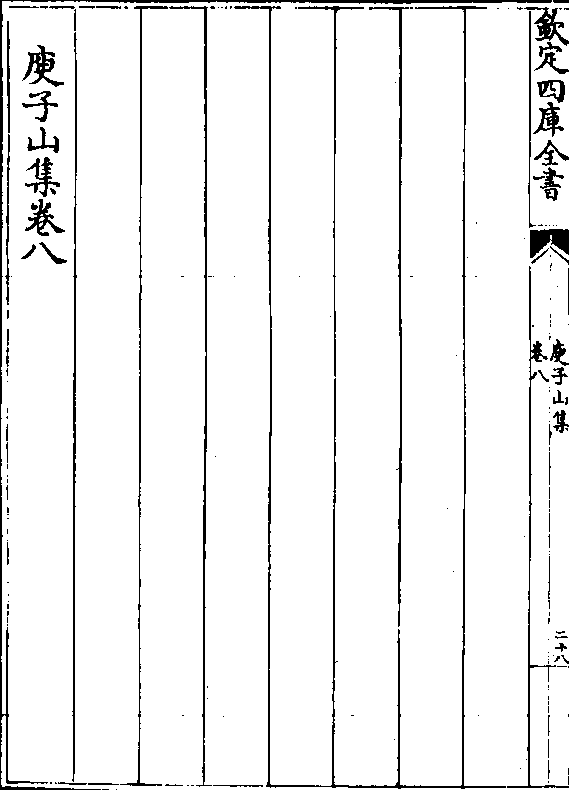 欽定四庫全書
庾子山集
卷八
二十八
庾子山集卷八